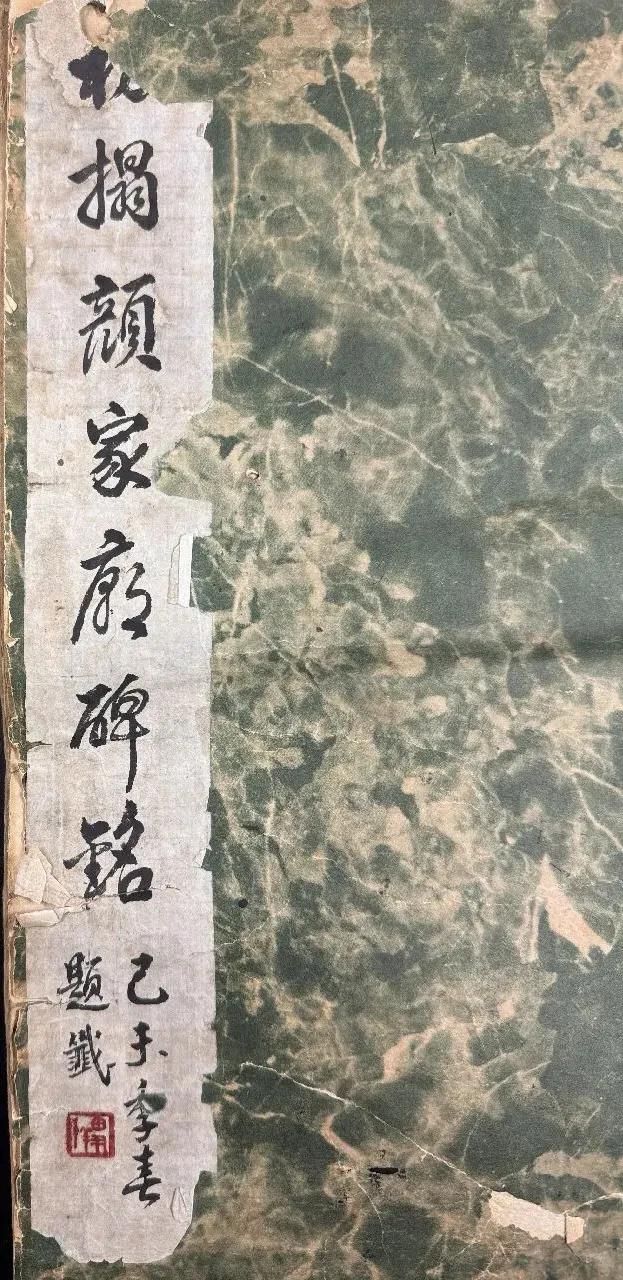 搨顏家廟碑銘
己未季春
題籤